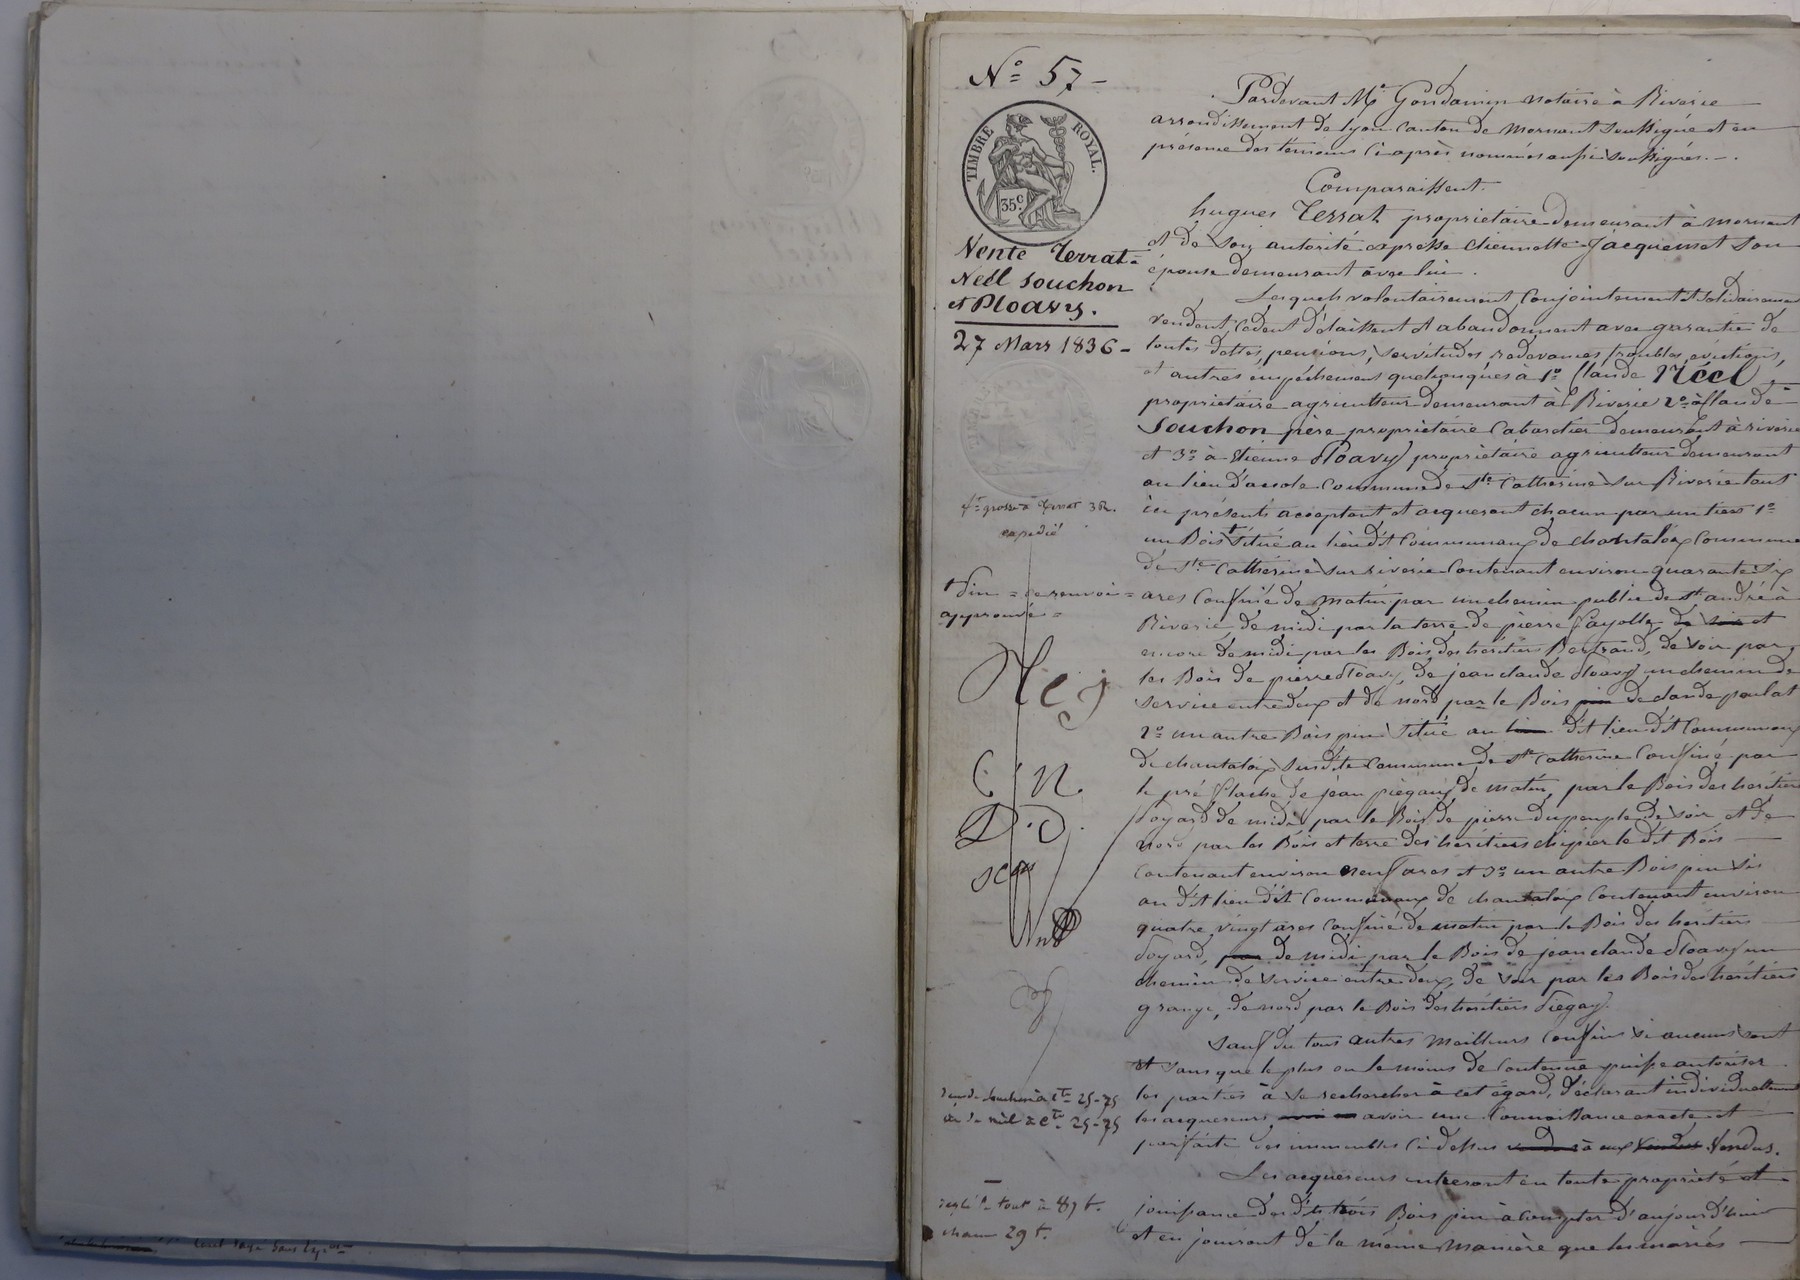 N° 57
TIMBRE ROYAL.
35 c.
Vente Terrat
Néel Souchon
et Ploavy.
27 Mars 1836
fte grosse à Terrat 3 R.
expédié
+ Pin = ce renvoi =
approuvé =
C N
claude Souchon a cte 25-75
claude néel a cte 25-75
réglé le tout à 87 f.
chacun 29 f.
Pardevant Me Gondamin notaire à Riverie
arrondissement de Lyon canton de Mornant soussigné et en
présence des témoins ci après nommés aussi soussignés.
Comparaissent.
hugues Terrat propriétaire demeurant à Mornant
et de son autorité expresse Etiennette Jacquemet son
épouse demeurant avec lui.
Lesquels volontairement, conjointement et solidairement
vendent, cèdent délaissent et abandonnent avec garantie de
toutes dettes, pensions, servitudes redevances troubles, évictions,
et autres empêchements quelconques à 1° Claude Néel
propriétaire agriculteur demeurant à Riverie 2° à Claude
Souchon père propriétaire Cabaretier demeurant à riverie
et 3° à Etienne Ploavy propriétaire agriculteur demeurant
au lieu d'accole Commune de Ste Catherine sur Riverie tout
ici présents acceptant et acquérant chacun par un tiers 1°
un Bois + situé au lieu dit Communaux de chantaloux Commune
de Ste Catherine sur riverie Contenant environ quarante six
ares Confiné de matin par un chemin public de St andré à
Riverie, de midi par la terre de pierre fayolle, de soir et
encore de midi par les Bois des héritiers Bertrand, de soir par
les Bois de pierre Ploavy, de jean claude Ploavy un chemin de
service entre deux et de nord par le Bois pin de claude poulat
2° un autre Bois pin situé au lieu dit lieu dit Communaux
de chantaloux susdite Commune de Ste Catherine Confiné par
le pré flache de jean piégay de matin, par le Bois des héritiers
foyard de midi par le Bois de pierre dupeuple de soir et de
nord par les Bois et terre des héritiers chipier le dit Bois
Contenant environ neuf ares et 3° un autre Bois pin sis
au dit lieu dit Communaux de chantaloux Contenant environ
quatre vingt ares Confiné de matin par le Bois des héritiers
foyard, par de midi par le Bois de jean claude Ploavy un
chemin de service entre deux, de soir par les Bois des héritiers
grange, de nord par le Bois des héritiers Piegay.
Sauf du tous autres meilleurs Confins si aucuns sont
et sans que le plus ou le moins de Contenue puisse autoriser
les parties à se rechercher à cet égard, déclarant individuellement
les acquéreurs avoir une Connaissance exacte et
parfaite des immeubles ci dessus vendus à eux vendus Vendus.
Les acquéreurs entreront en toute propriété et
jouissance des dits trois Bois pin à compter d'aujourd'hui
et en jouiront de la même manière que les mariés